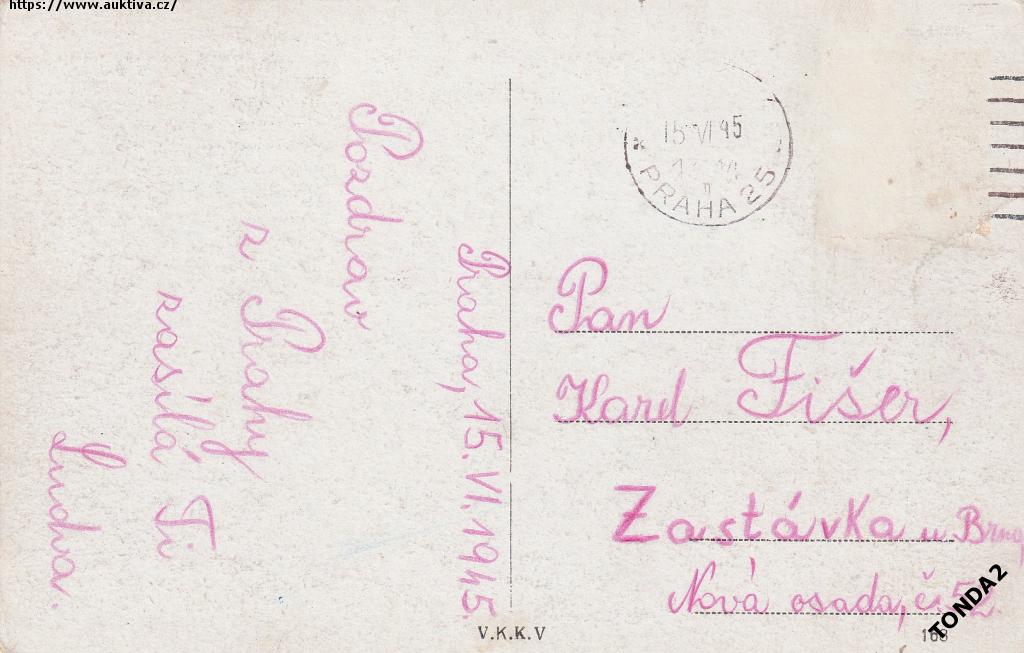 https://www.auktiva.cz/
Praha, 15.VI.1945.
Pozdrav
z Prahy
zasílá Ti
Ludva.
15 VI 45
PRAHA 25
Pan
Karel Fišer,
Zastávka u Brna,
Nová osada, č. 52.
V.K.K.V
168
TONDA2